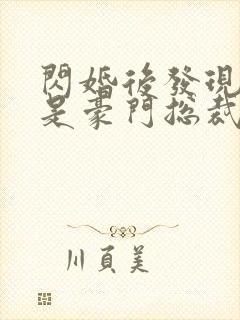 閃婚後發現
是豪門總裁
川頁美